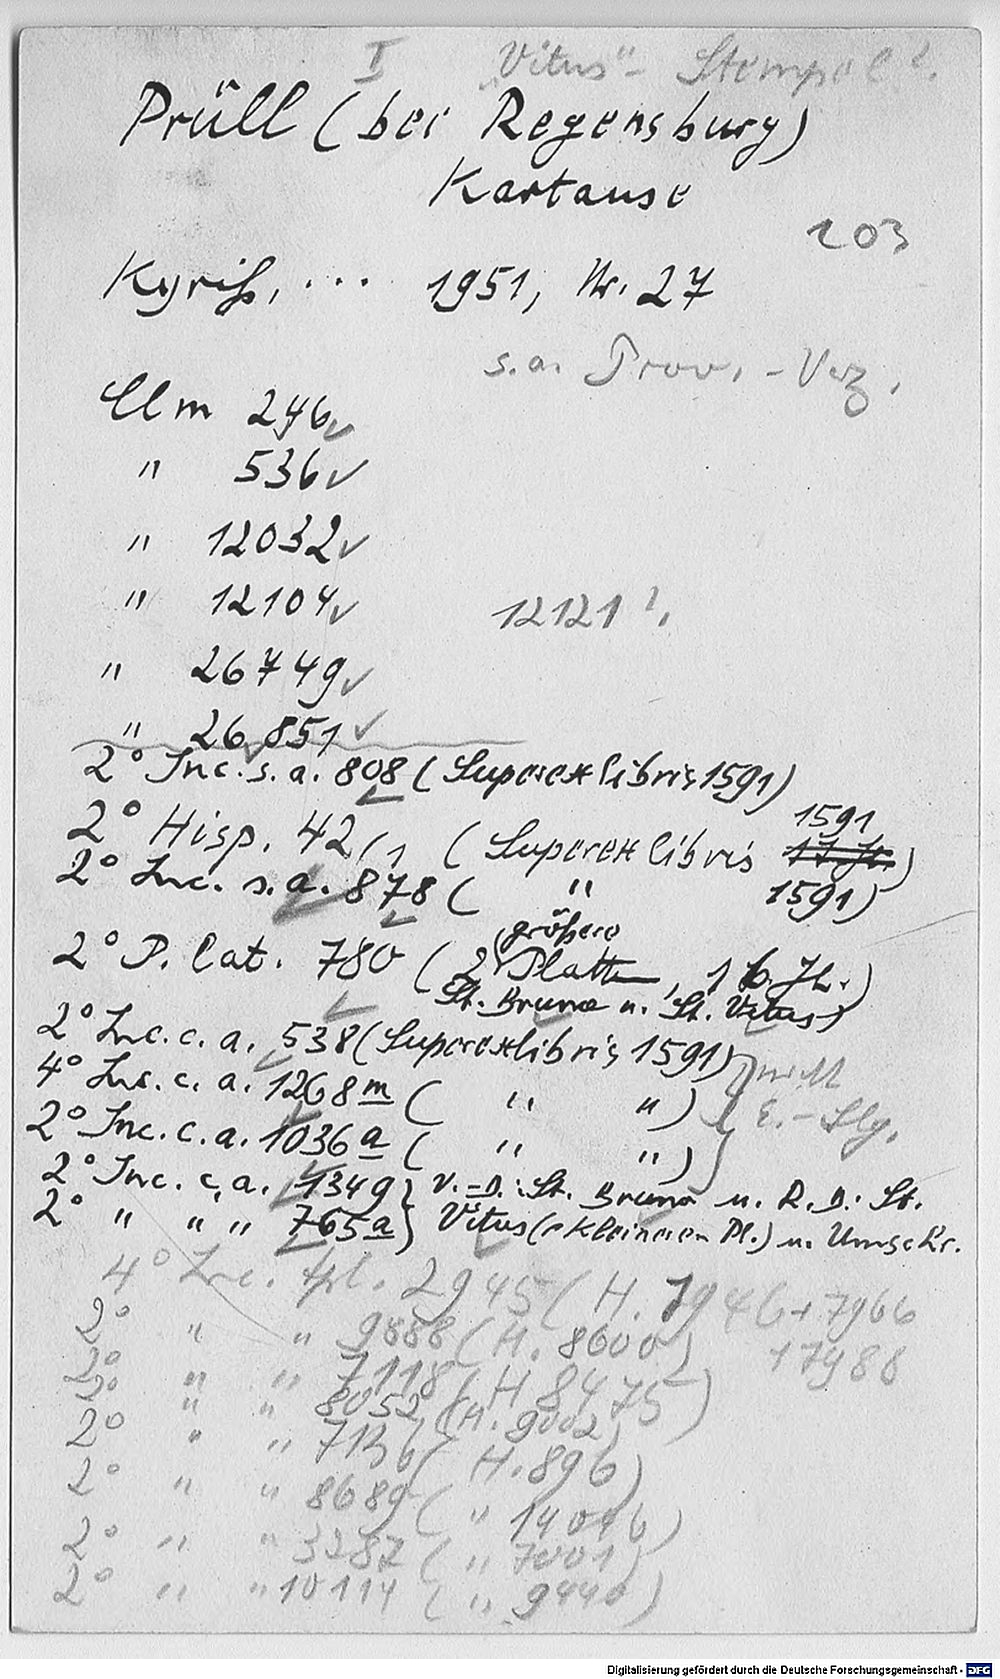 I „Vitus"- Stempel?.
Prüll (bei Regensburg)
Kartause
203
Kyriß, ... 1951, Nr. 27
s.a. Prov.-Verz.
Clm 246 ✓
" 536 ✓
" 12032 ✓
" 12104 ✓ 12121?.
" 26749 ✓
" 26851 ✓
2° Inc. s. a. 808 (Superexlibris 1591)
1591
2° Hisp. 42/1 (Superexlibris 17. Jh.)
2° Inc. s. a. 878 ( " 1591)
größere
2° P. lat. 780 (2 Platten, 16. Jh.)
St. Bruno u. St. Vitus)
2° Inc. c. a. 538 (Superexlibris 1591)
4° Inc. c. a. 1268m ( " ")
E.-Slg.
2° Inc. c. a. 1036a ( " ")
2° Inc. c. a. 1349} V.-D.: St. Bruno u. R. D.: St.
2° " " " 765a} Vitus (kleineren Pl.) u. Umschr.
4° Inc. 2945 (H. 7946 + 7966
+ 7988
2° " " 9888 (H. 8600)
2° " " 7118 (H 8475)
2° " " 8052 (H. 9002)
2° " " 7136 ( H. 896)
2° " " 8689 ( " 14046)
2° " " 3287 ( " 7001)
2° " " 10114 ( " 9440)
Digitalisierung gefördert durch die Deutsche Forschungsgemeinschaft - DFG